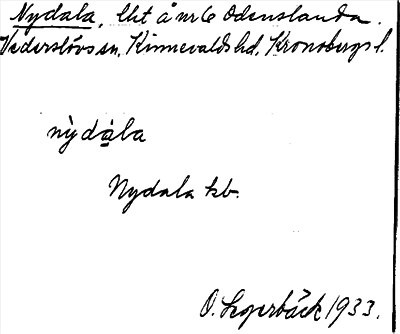 Nydala, lht å nr 6 Odenslanda.
Vederslövs sn, Kinnevalds hd, Kronobergs l.
nỳdȧ̱la
Nydala kb.
O. Lagerbäck 1933.